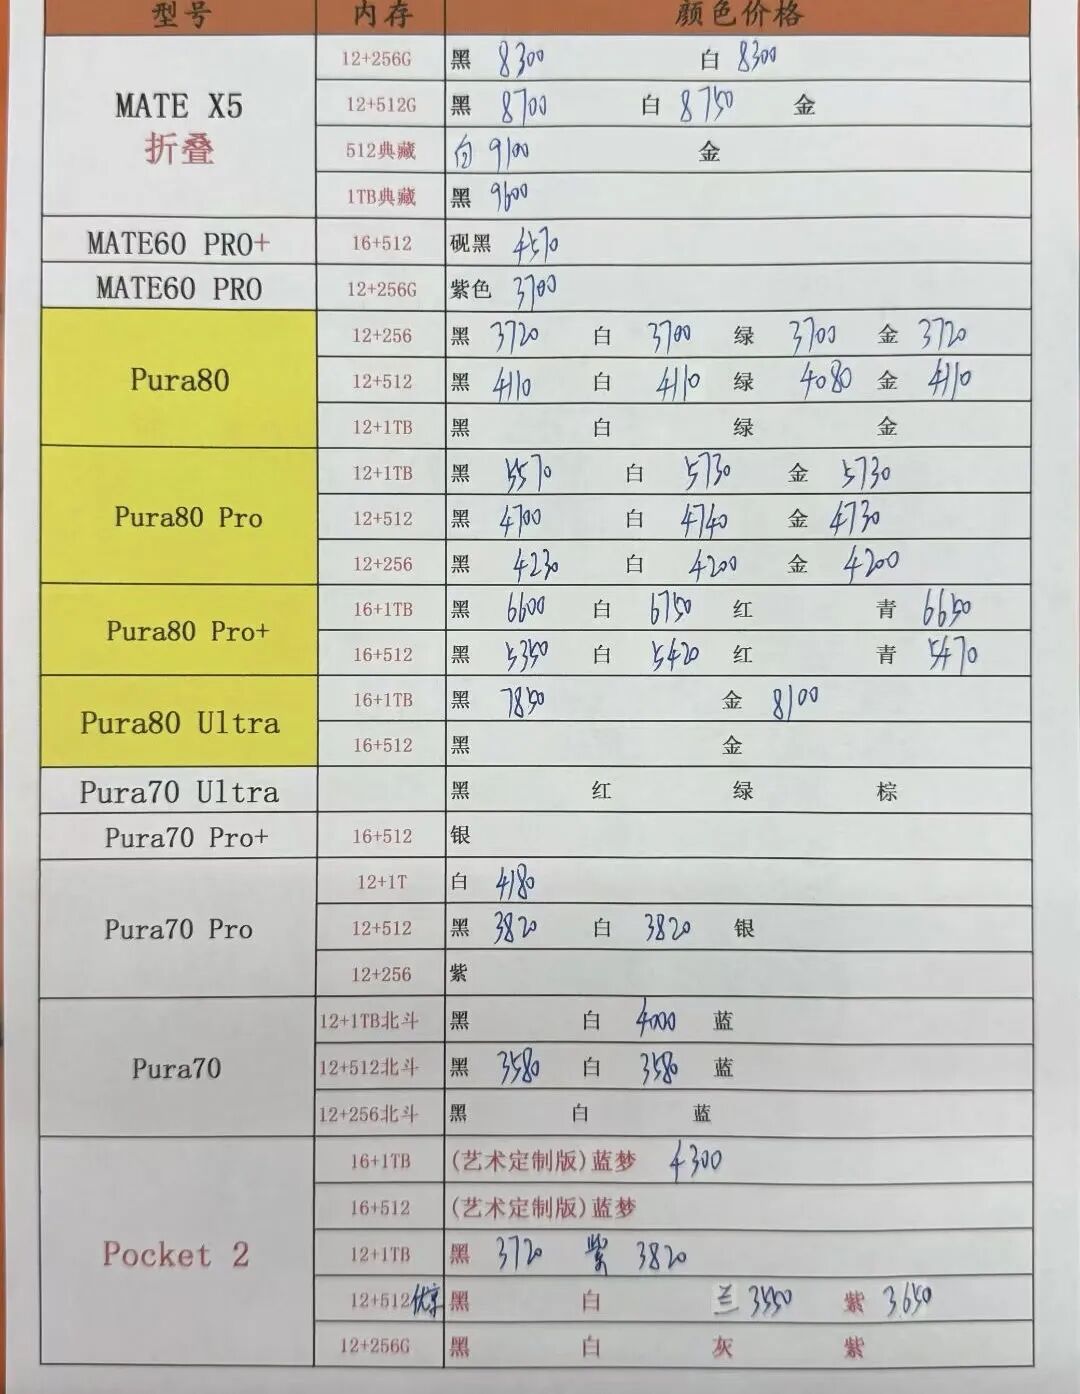 型号 内存 颜色价格
MATE X5 折叠
12+256G 黑 8300 白 8300
12+512G 黑 8700 白 8750 金
512典藏 白 9100 金
1TB典藏 黑 9600
MATE60 PRO+ 16+512 砚黑 4570
MATE60 PRO 12+256G 紫色 3700
Pura80
12+256 黑 3720 白 3700 绿 3700 金 3720
12+512 黑 4110 白 4110 绿 4080 金 4110
12+1TB 黑 白 绿 金
Pura80 Pro
12+1TB 黑 5570 白 5730 金 5730
12+512 黑 4700 白 4740 金 4730
12+256 黑 4230 白 4200 金 4200
Pura80 Pro+
16+1TB 黑 6600 白 6750 红 青 6650
16+512 黑 5350 白 5420 红 青 5470
Pura80 Ultra
16+1TB 黑 7850 金 8100
16+512 黑 金
Pura70 Ultra 黑 红 绿 棕
Pura70 Pro+ 16+512 银
Pura70 Pro
12+1T 白 4180
12+512 黑 3820 白 3820 银
12+256 紫
Pura70
12+1TB北斗 黑 白 4000 蓝
12+512北斗 黑 3580 白 3580 蓝
12+256北斗 黑 白 蓝
Pocket 2
16+1TB (艺术定制版)蓝梦 4300
16+512 (艺术定制版)蓝梦
12+1TB 黑 3720 紫 3820
12+512 优享 黑 白 兰 3550 紫 3650
12+256G 黑 白 灰 紫